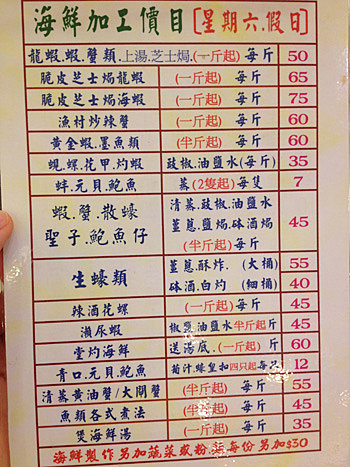 海鮮加工價目[星期六.假日]
龍蝦.蝦.蟹類.上湯.芝士焗.(一斤起) 每斤 50
脆皮芝士焗龍蝦 (一斤起) 每斤 65
脆皮芝士焗海蝦 (一斤起) 每斤 75
漁村炒辣蟹 (一斤起) 每斤 60
黃金蝦.墨魚類 (半斤起) 每斤 60
蜆.螺.花甲.灼蝦 豉椒.油鹽水(每斤) 35
蚌.元貝.鮑魚 蒸(2隻起)每隻 7
蝦.蟹.散蠔 聖子.鮑魚仔
清蒸.豉椒.油鹽水
薑蔥.鹽焗.砵酒焗
(半斤起)每斤
45
生蠔類
薑蔥.酥炸. (大桶) 55
砵酒.白灼 (細桶) 40
辣酒花螺 (一斤起) 每斤 45
瀨尿蝦 椒鹽油鹽水半斤起斤 45
堂灼海鮮 送湯底.(一斤起) 斤 60
青口.元貝.鮑魚 四只起每只 12
清蒸黃油蟹/大閘蟹 (半斤起) 每斤 55
魚類各式煮法 (半斤起) 每斤 45
煲海鮮湯 (一斤起) 每斤 35
海鮮製作另加蔬菜或粉.每份另加$30